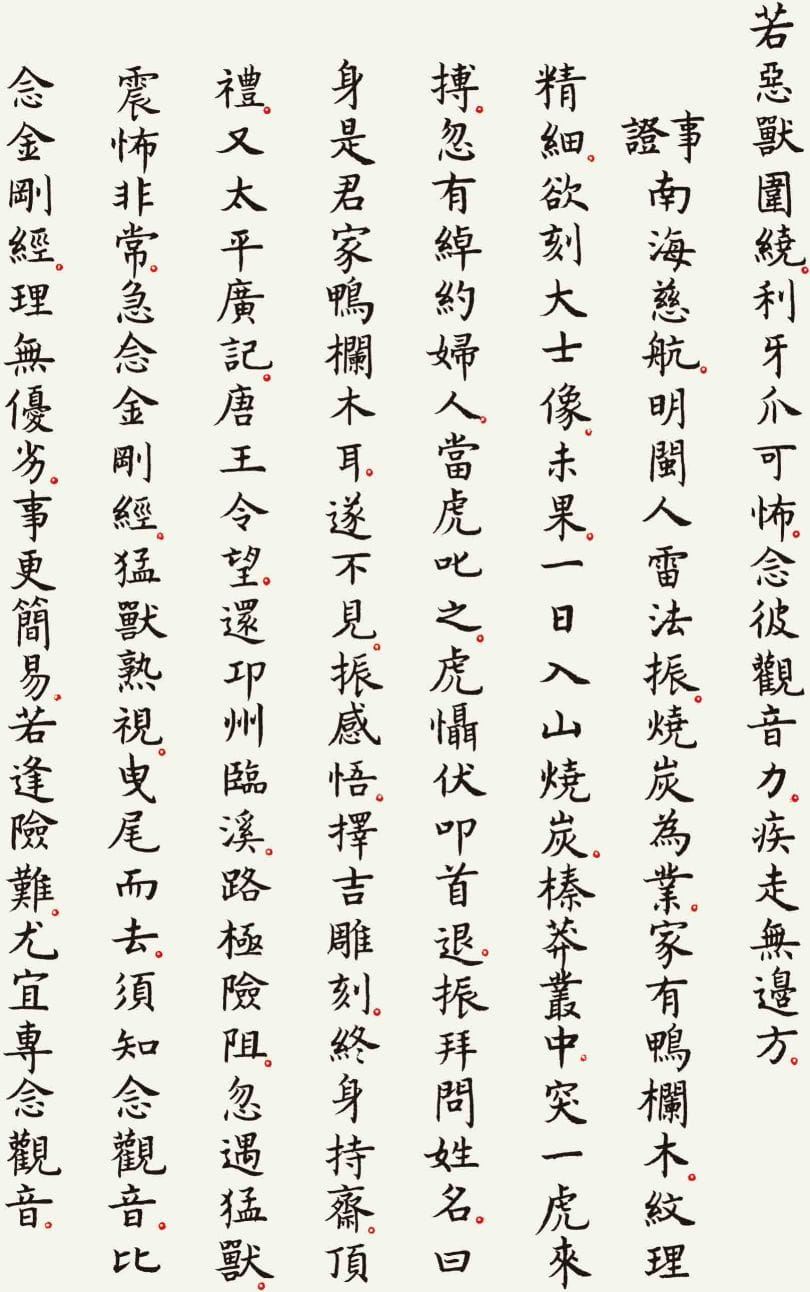 若惡獸圍繞。利牙爪可怖。念彼觀音力。疾走無邊方。
事證
南海慈航。明閩人雷法振。燒炭為業。家有鴨欄木。紋理
精細。欲刻大士像。未果。一日入山燒炭。榛莽叢中。突一虎來
搏。忽有綽約婦人。當虎叱之。虎懾伏叩首退。振拜問姓名。曰
身是君家鴨欄木耳。遂不見。振感悟。擇吉雕刻。終身持齋。頂
禮。又太平廣記。唐王令望。還邛州臨溪。路極險阻。忽遇猛獸。
震怖非常。急念金剛經。猛獸熟視。曳尾而去。須知念觀音。比
念金剛經。理無優劣。事更簡易。若逢險難。尤宜專念觀音。